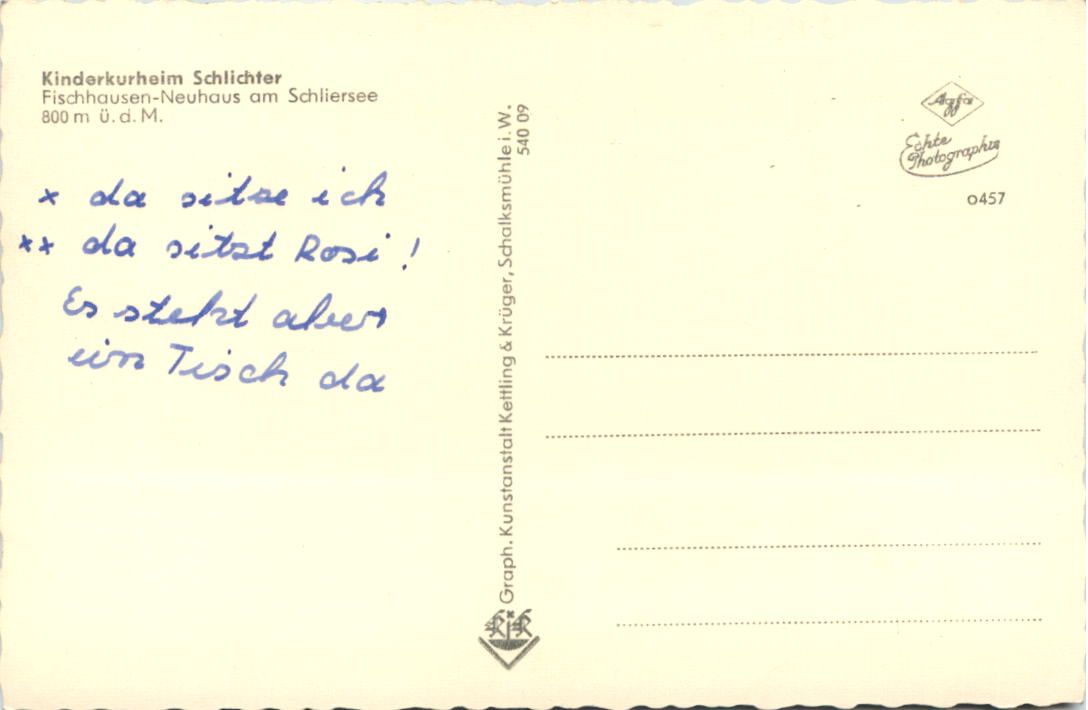 Kinderkurheim Schlichter
Fischhausen-Neuhaus am Schliersee
800 m ü. d. M.
x da sitze ich
xx da sitzt Rosi!
Es steht aber
ein Tisch da
Graph. Kunstanstalt Kettling & Krüger, Schalksmühle i. W.
540 09
Agfa
Echte
Photographie
O457